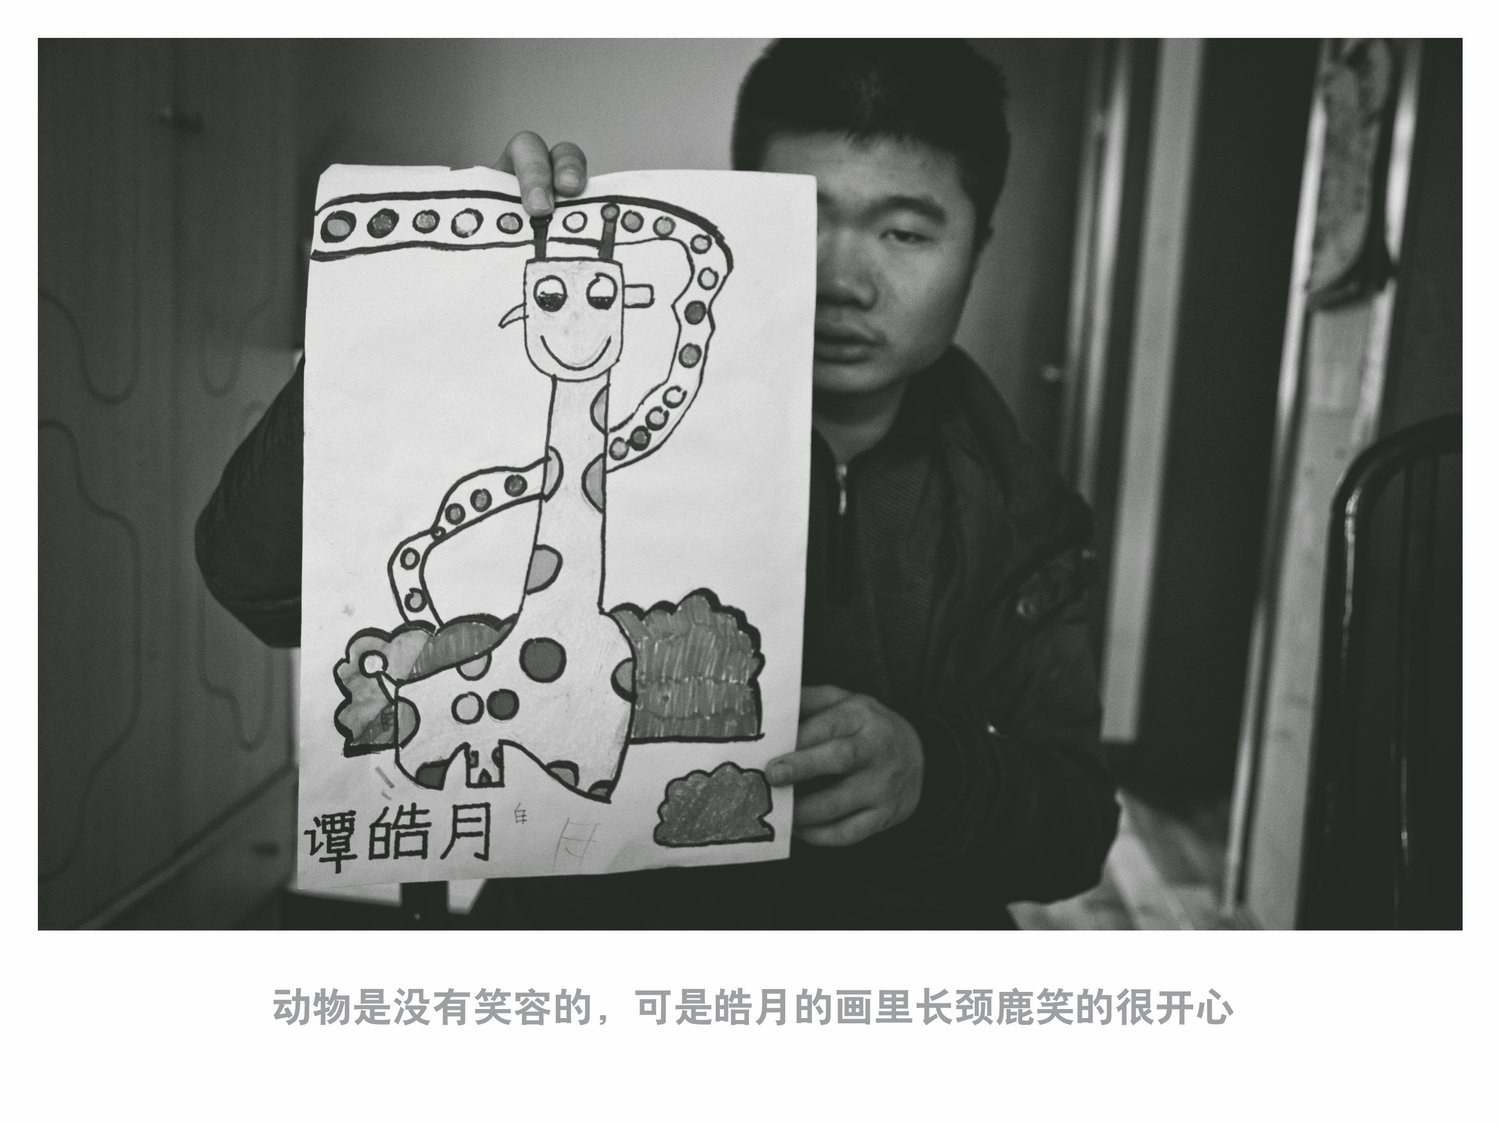 谭皓月
动物是没有笑容的，可是皓月的画里长颈鹿笑的很开心